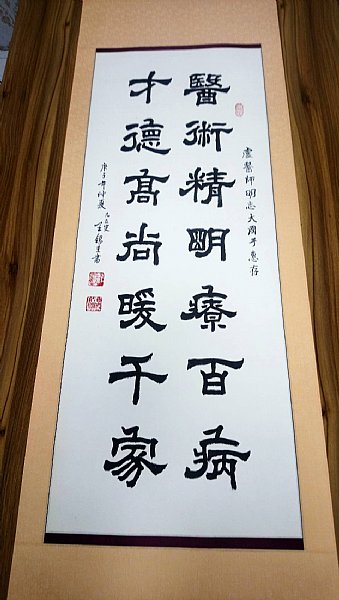 盧醫師明志大國手惠存
醫術精明療百病
才德高尚暖千家
庚子年仲夏 書